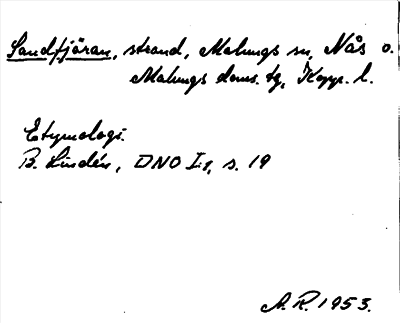 Sandfjäran, strand, Malungs sn, Nås o.
Malungs doms. tg, Kopp. l.
Etymologi.
B. Lindén, DNO I:1, s. 19
A. R. 1953.